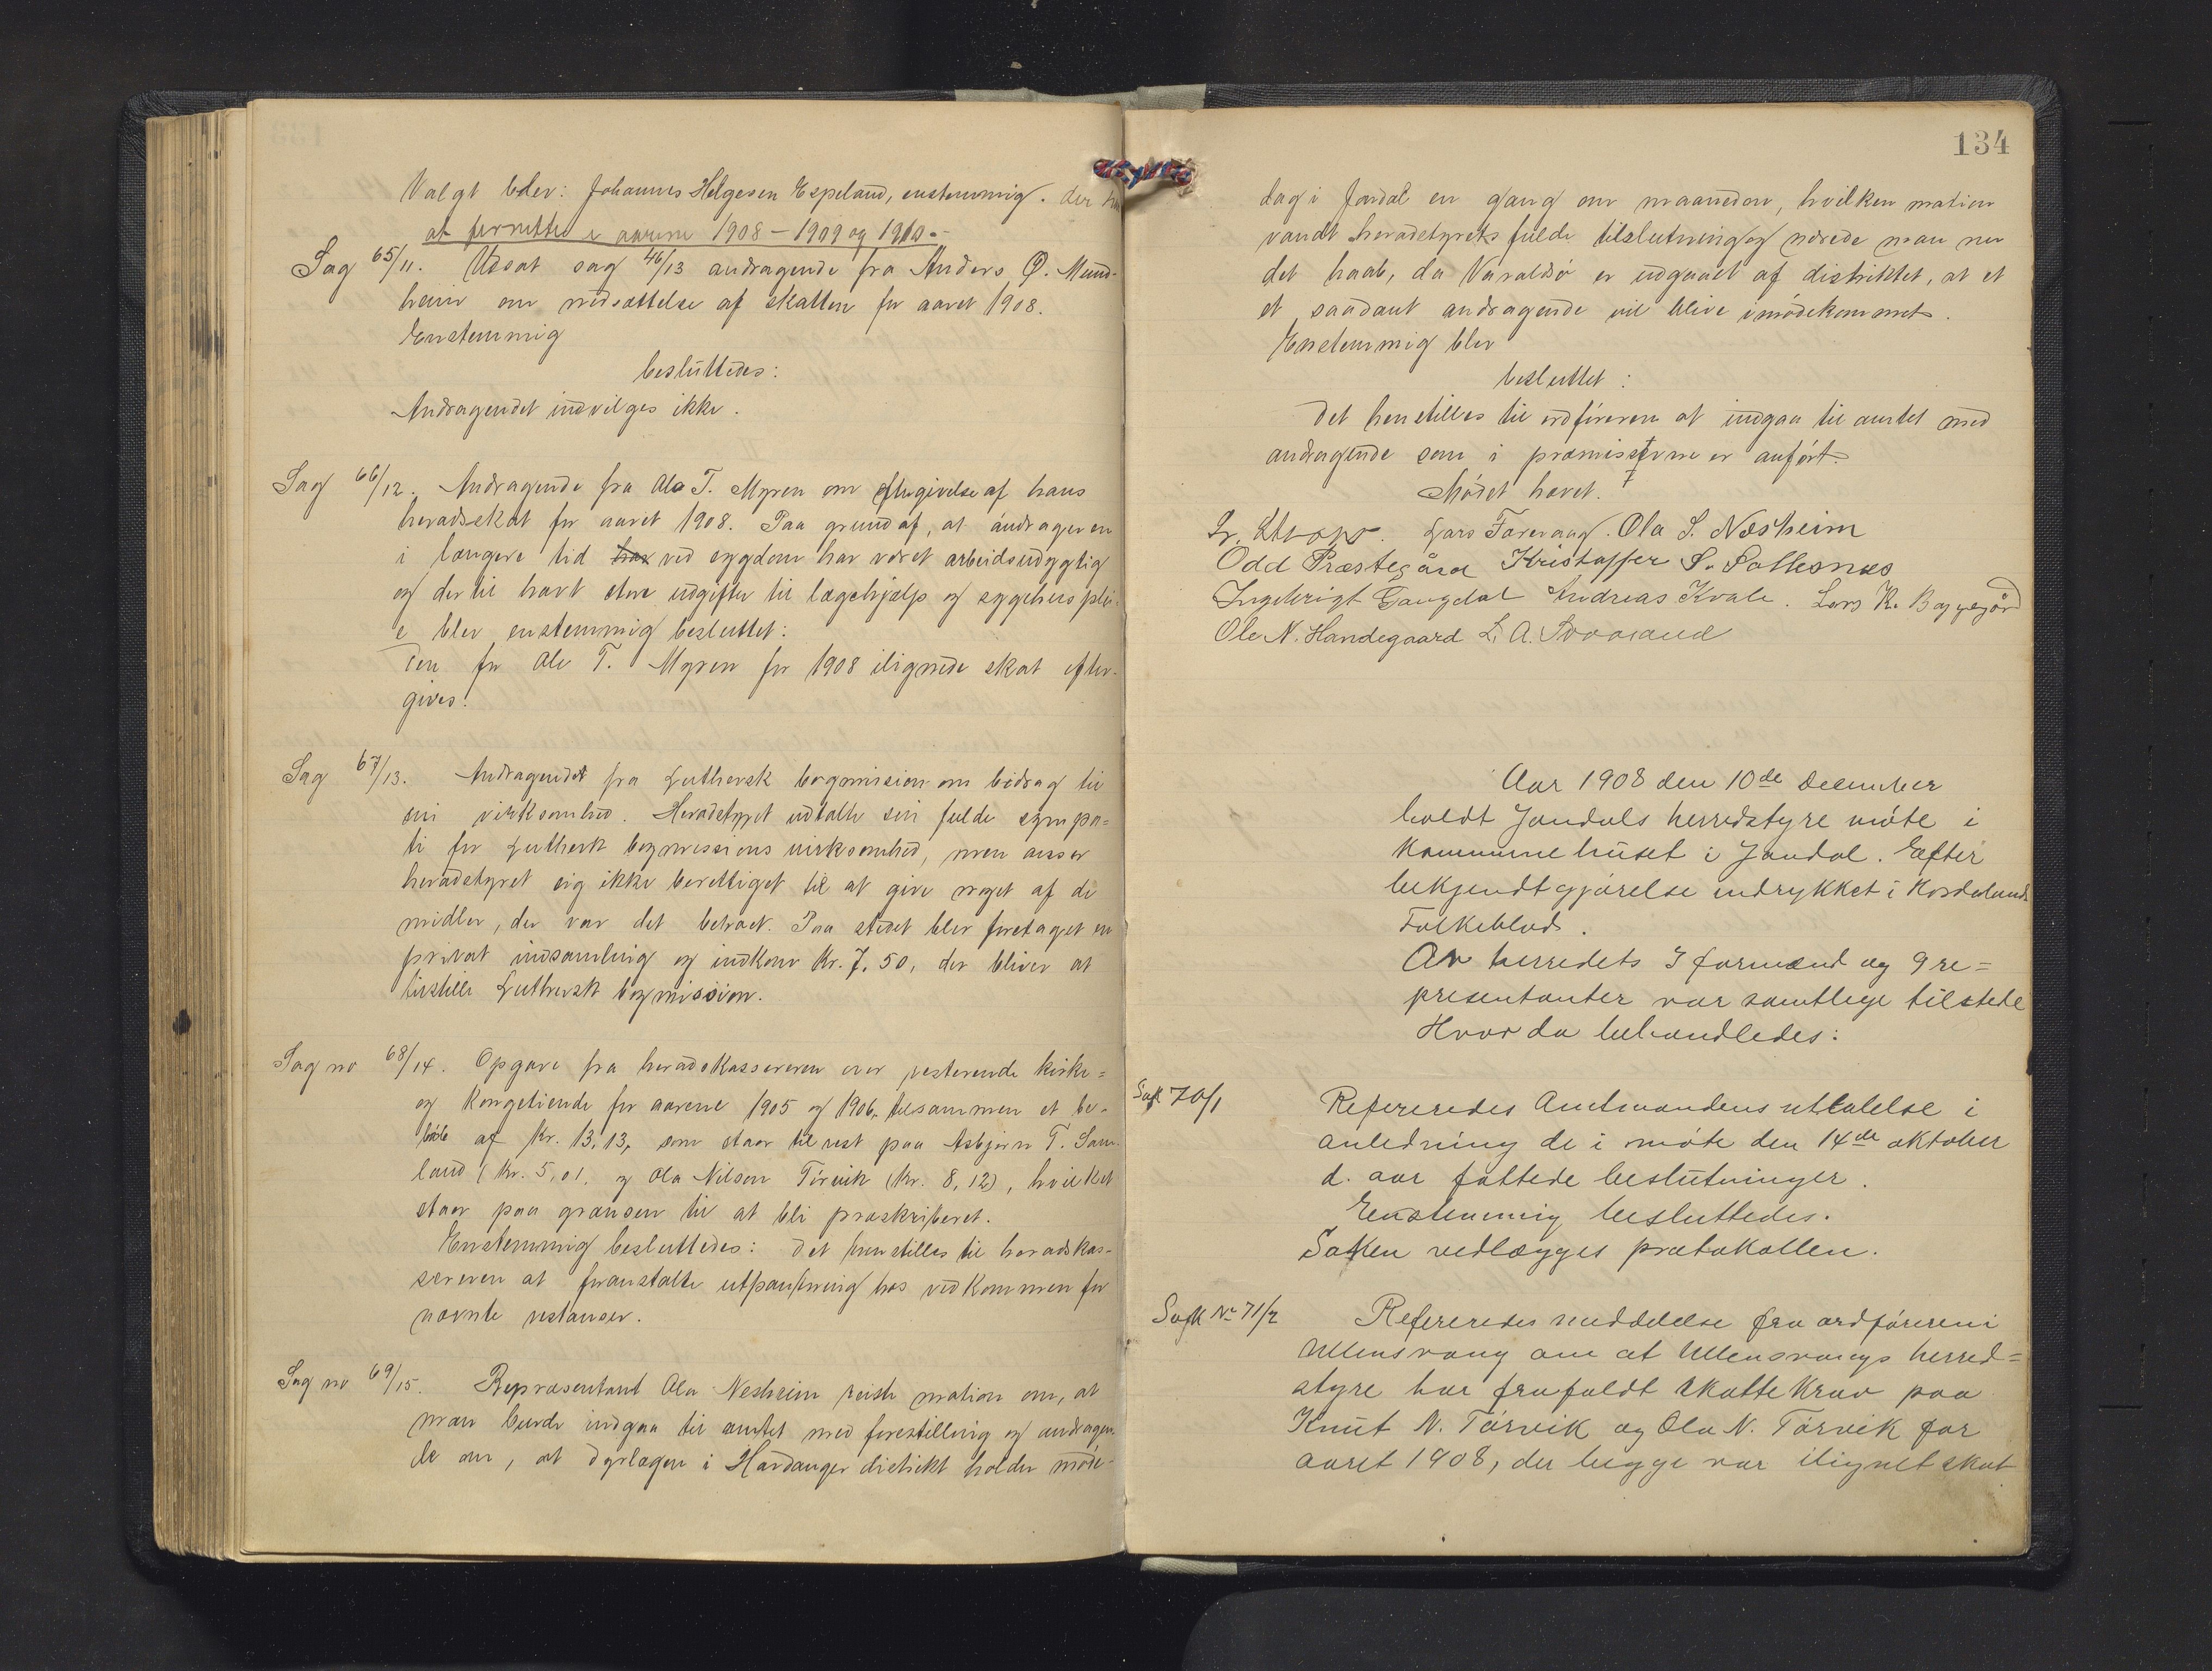 Valgt blev: Johannes Helgesen Espeland, enstemmig. der har
at forrette i aarene 1908 – 1909 og 1910.
Sag 65/11. Udsat sag 46/13 andragende fra Anders O. Mund-
heim om nedsættelse af skatten for aaret 1908.
Enstemmig
besluttedes:
Andragendet indvilges ikke.
Sag 66/12. Andragende fra Ole T. Myren om eftergivelse af hans
heradsskat for aaret 1908. Paa grund af, at andrageren
i længere tid har ved sygdom har været arbeidsudygtig
og dertil havt store udgifter til lægehjælp og sygehusplei-
e blev enstemmig besluttet:
Den for Ole T. Myren for 1908 ilignede skat efter-
gives.
Sag 67/13. Andragendet fra Luthersk bogmision om bidrag til
sin virksomhed. Heradstyret udtalte sin fulde sympa=
ti for Luthersk bogmissions virksomhed, men anser
heradstyret sig ikke berettiget til at give noget af de
midler, der var det betroet. Paa stedet blev foretaget en
privat indsamling og indkom Kr. 7,50, der bliver at
tilstille Luthersk bogmission.
Sag no 68/14. Opgave fra heradskassereren over resterende kirke=
og Kongetiende for aarene 1905 og 1906 tilsammen et be-
løb af Kr. 13,13, som staar til rest paa Asbjørn T. Sam-
land (Kr. 5,01. og Ola Nilsen Tørvik (Kr. 8,12), hvilket
staar paa grænsen til at bli præskriberet.
Enstemmig besluttedes: Det henstilles til heradskas-
sereren at foranstalte utpantning hos vedkommen for
nævnte restanser.
Sag no 69/15. Repræsentant Ola Nesheim reiste mation om, at
man burde indgaa til amtet med forestilling og andragen-
de om, at dyrlægen i Hardanger distrikt holder møde-
134
dag i Jondal en gang om maaneden, hvilken mation
vandt heradstyrets fulde tilslutning og nærede man nu
det haab, da Varaldsø er udgaaet af distriktet, at et
et saadant andragende vil blive imødekommet.
Enstemmig blev
besluttet:
Det henstilles til ordføreren at indgaa til amtet med
andragende som i præmisserne er anført.
Mødet hævet.
Lars Torevaag. Ola S. Næsheim
Odd Præstegård Kristoffer S. Solhesnes
Ingebrigt Gangdal Andreas Kvale. Lars K. Byggegård
Ole N. Handegaard L. A.
Aar 1908 den 10de December
holdt Jondals herredstyre møte i
Kommunehuset i Jondal. Efter
bekjendtgjørelse indrykket i Hordaland
Folkeblad.
Av herredets 3 formænd og 9 re=
presentanter var samtlige tilstede
Hvor da behandledes:
Sak 70/1 Refereredes Amtmandens uttalelse i
anledning de i møte den 14de oktober
d. aar fattede beslutninger.
Enstemmig besluttedes.
Saken vedlægges protokollen.
Sak No 71/2 Refereredes meddelelse fra ordføreren i
Ullensvang om at Ullensvangs herred=
styre har frafaldt skattekrav paa
Knut N. Tørvik og Ola N. Tørvik for
aaret 1908, der begge var ilignet skat